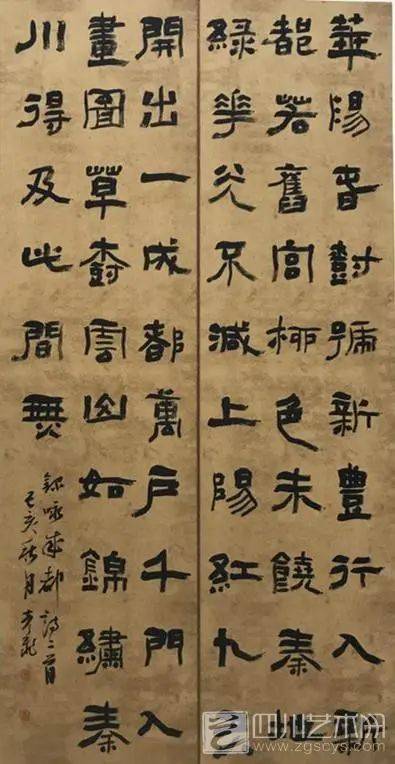 華陽春樹號新豐行入新
都若舊宮柳色未饒秦地
綠華光不減上陽紅九天
開出一成都萬戶千門入
畫圖草樹雲山如錦繡秦
川得及此間無
錄咏成都詩二首
己亥秋月
四川艺术网
www.zgscys.com